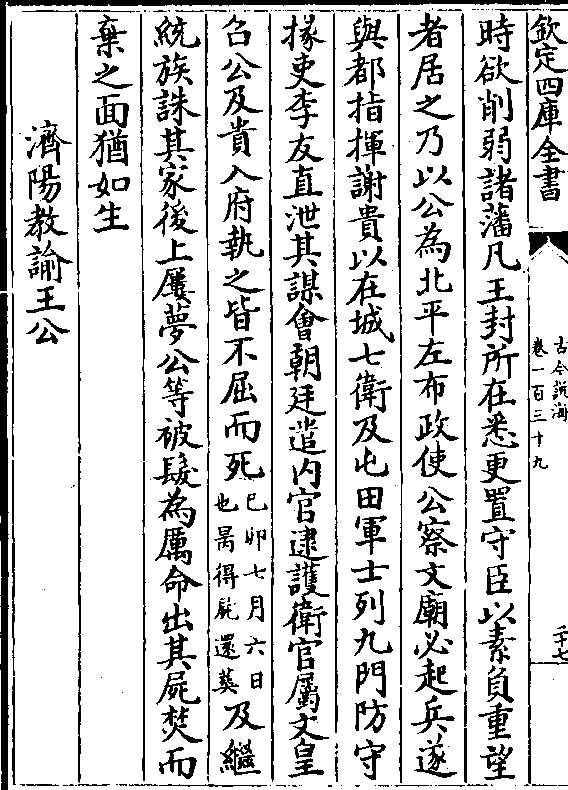 欽定四庫全書
古今說海
卷一百三十九
二十七
時欲削弱諸藩凡王封所在悉更置守臣以素負重望
者居之乃以公為北平左布政使公察文廟必起兵遂
與都指揮謝貴以在城七衛及屯田軍士列九門防守
掾吏李友直泄其謀會朝廷遣内官逮護衛官屬文皇
召公及貴入府執之皆不屈而死己卯七月六日也昺得屍還葬及繼
統族誅其家後上屢夢公等被髮為厲命出其屍焚而
棄之面猶如生
濟陽教諭王公